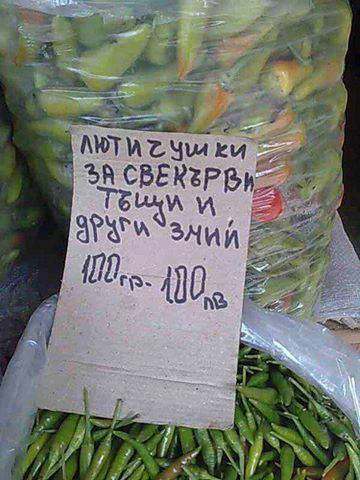 ЛЮТИ ЧУШКИ
ЗА СВЕКЪРВИ
ТЪЩИ И
ДРУГИ ЗМИЙ
100гр- 100лв